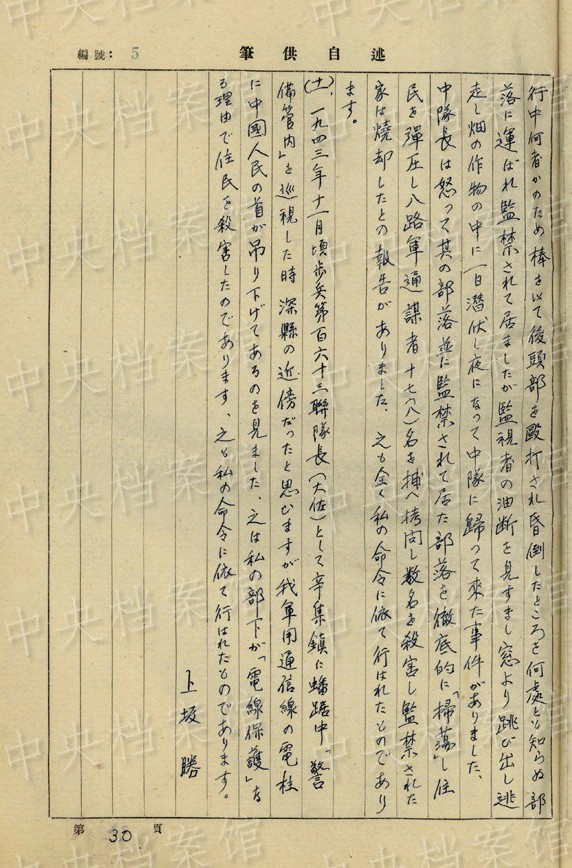 編號: 5
述自供筆
行中何者かのため棒を以て後頭部を毆打され昏倒したところを何處とも知らぬ部
落に運ばれ監禁されて居ましたが監視者の油断を見すまし窓より跳び出し逃
走し畑の作物の中に一日潜伏し夜になって中隊に歸って来た事件がありました、
中隊長は怒って其の部落並に監禁されて居た部落を徹底的に「掃蕩」し住
民を彈圧し八路軍通謀者十七(八)名を捕へ拷問し数名を殺害し監禁された
家は焼却したとの報告がありました、之も全く私の命令に依て行はれたものであり
ます。
(十)、一九四三年十一月頃歩兵第百六十三聯隊長(大佐)として辛集鎮に蟠踞中「警
備管内」を巡視した時深縣の近傍だったと思ひますが我軍用通信線の電柱
に中國人民の首が吊り下げてあるのを見ました、之は私の部下が「電線保護」な
る理由で住民を殺害したのであります、之も私の命令に依て行はれたものであります。
上坂 勝
第 30 頁
中央档案馆